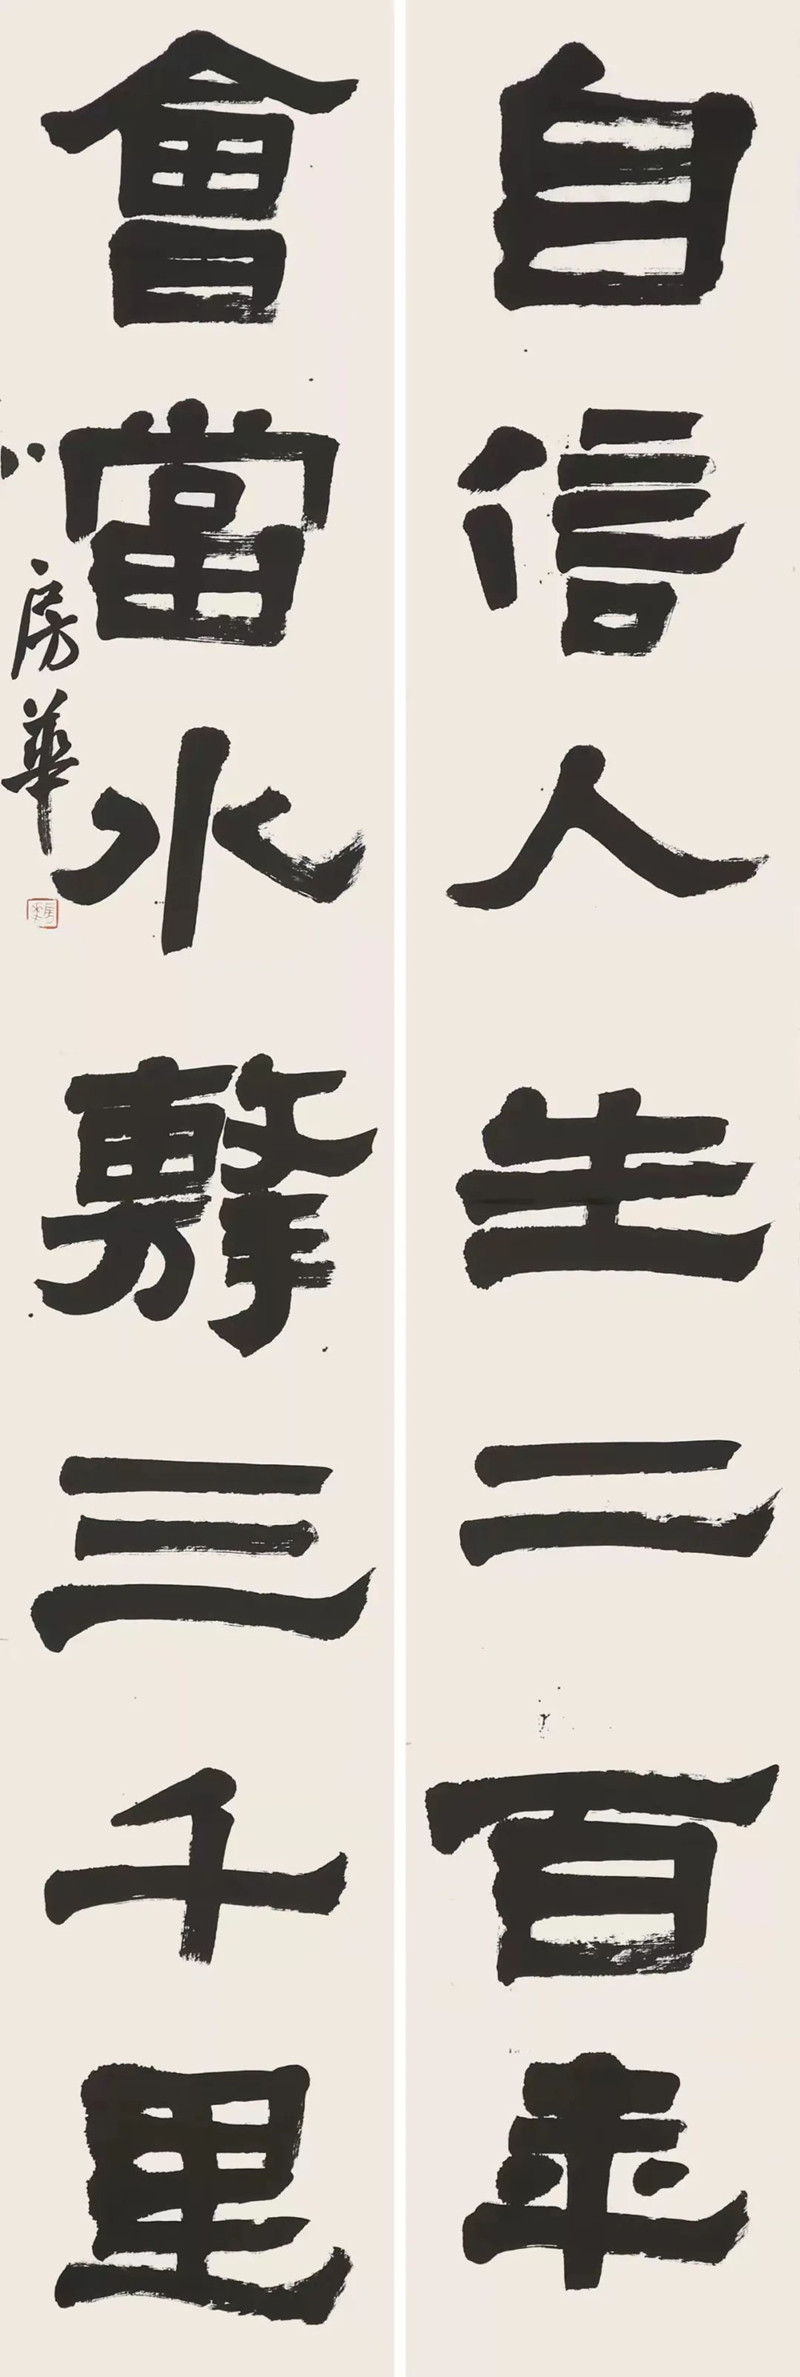 自信人生二百年
會當水擊三千里
房華